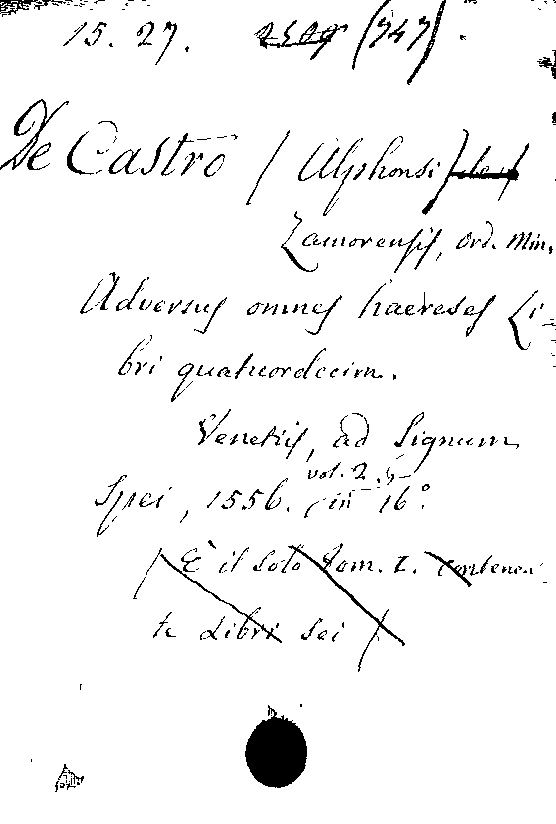 15. 27. 2509 (747)
De Castro (Alphonsi) de)
Zamorensis, Ord. Min.
Adversus omnes haereses Li-
bri quatuordecim.
Venetiis, ad Signum
vol. 2.
Spei, 1556. in 16°.
(È il solo Tom. I. contenen-
te Libri sei)